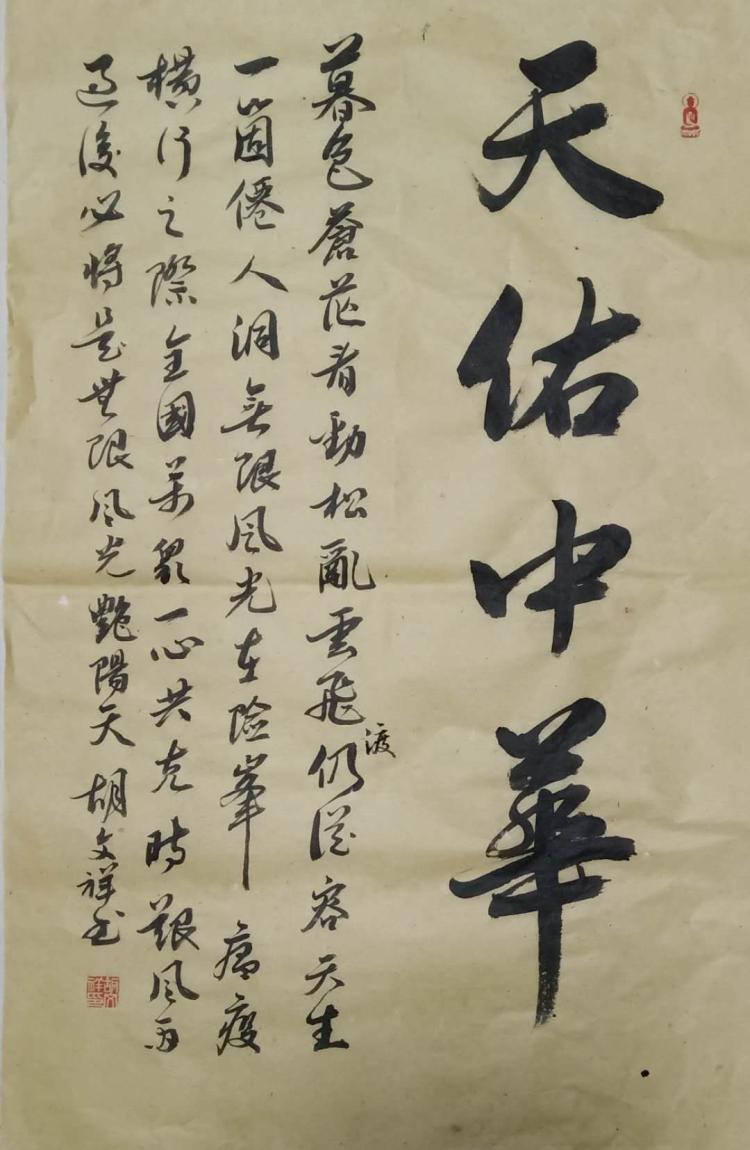 天佑中華
暮色蒼茫看勁松亂雲飛渡仍從容天生
一個僊人洞無限風光在險峯 瘟疫
橫行之際全國萬眾一心共克時艱風雨
過後必將是無限風光艷陽天 胡文祥書
胡文祥印